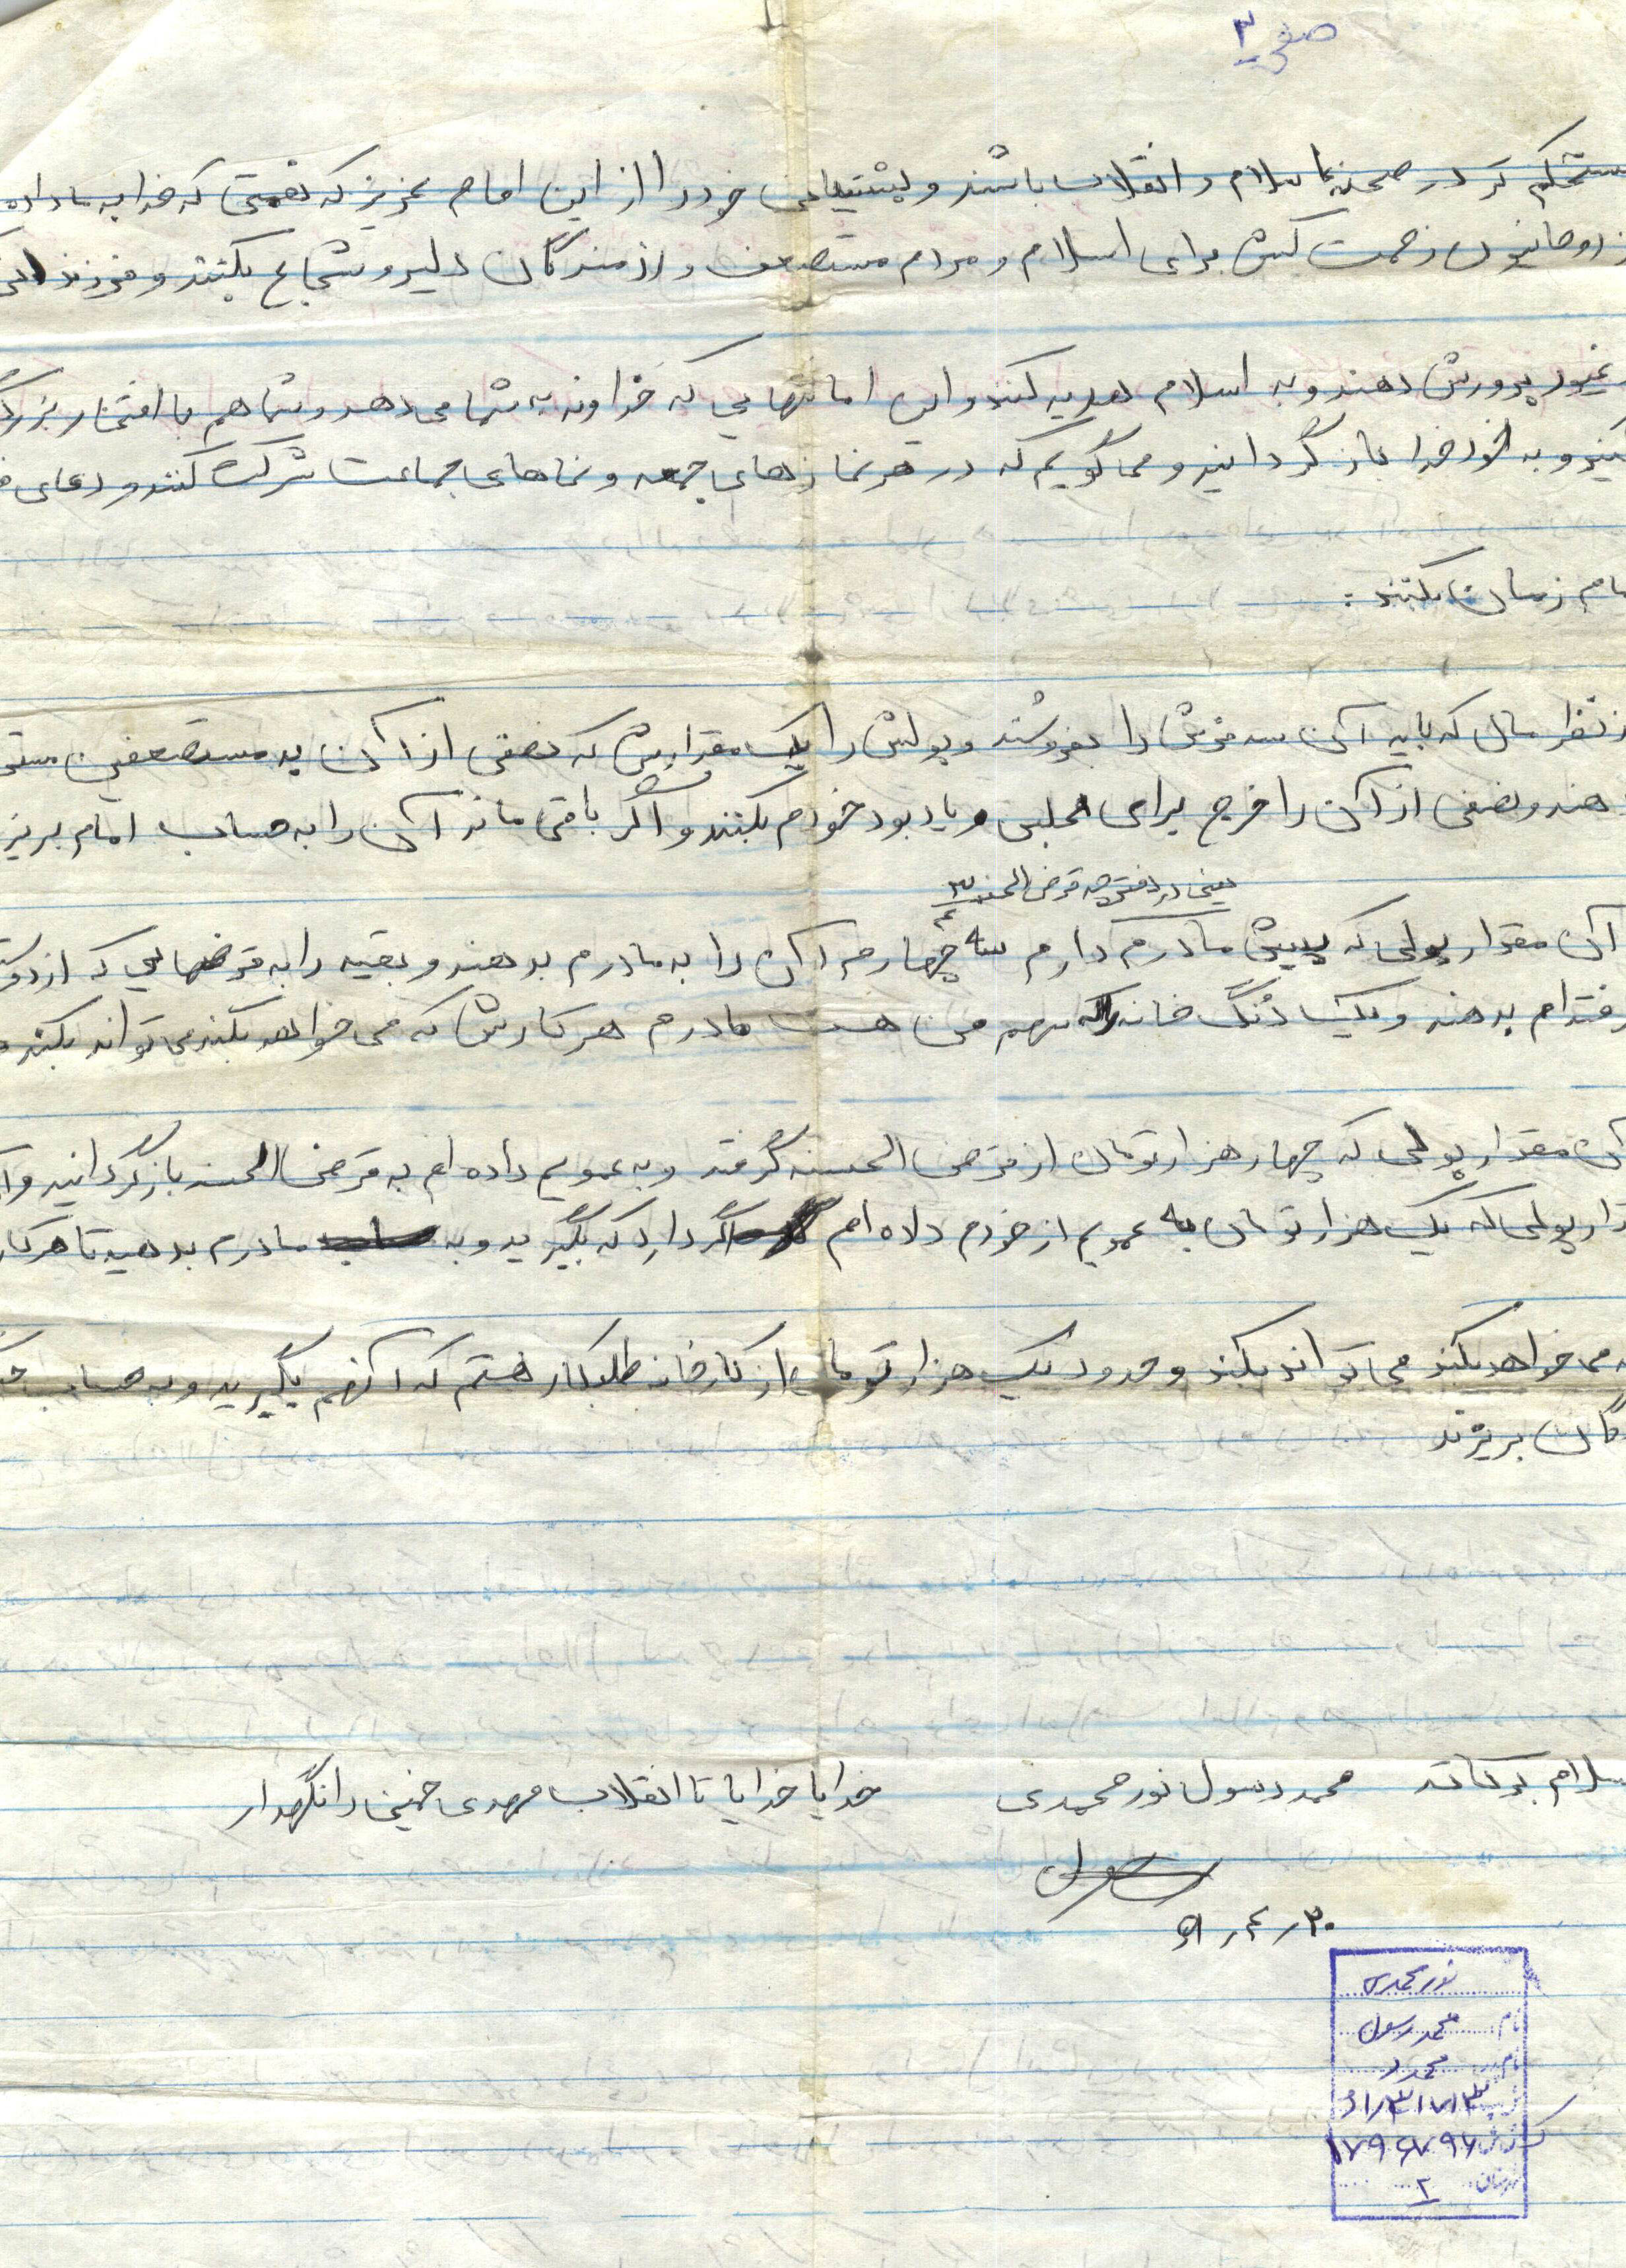 صفحه ۳
مستحکم تر در صحنه اسلام و انقلاب باشند و پشتیبانی خود را از این امام عزیز که نعمتی که خدا به ما داده
روحانیون زحمت کش برای اسلام و مردم مستضعف و رزمندگان دلیر و شجاع بکنند و فرزندانی
غیور پرورش دهند و به اسلام هدیه کنند و این امانتهایی که خداوند به شما می دهد و شما هم با افتخار بزرگ
کنید و به خود خدا باز گردانید و می گویم که در هر نماز های جمعه و نماهای جماعت شرکت کنند و دعای
امام زمان بکنند :
از نظر مال که باید آن سه فرش را بفروشند و پولش را یک مقدارش که نصفی از آن به مستضعفین
دهند و نصفی از آن را خرج برای مجلس و یادبود خودم بکنند و اگر باقی ماند آن را به حساب امام بریزند
یعنی در دفترچه قرض الحسنه ۳/۴
آن مقدار پولی که پیش مادرم دارم سه چهارم آن را به مادرم بدهند و بقیه را به قرضهایی که از
گرفته ام بدهند و یک دُنگ خانه که سهم من هست مادرم هر کارش که می خواهد بکند می تواند بکند و
آن مقدار پولی که چهار هزار تومان از قرض الحسنه گرفته و به عمویم داده ام به قرض الحسنه باز گردانید و آن
مقدار پولی که یک هزار تومان به عمویم از خودم داده ام اگر دارد که بگیرید و به مادرم بدهید تا هر کار
که می خواهد بکند می تواند بکند و حدود یک هزار تومان از کارخانه طلبکار هستم که آنهم بگیرید و به حساب
گان بریزند
سلام برکاته محمد رسول نورمحمدی خدایا خدایا تا انقلاب مهدی خمینی را نگهدار
رسول
۳۰ ر ۴ ر ۶۱
نورمحمدی
نام: محمد رسول
نام